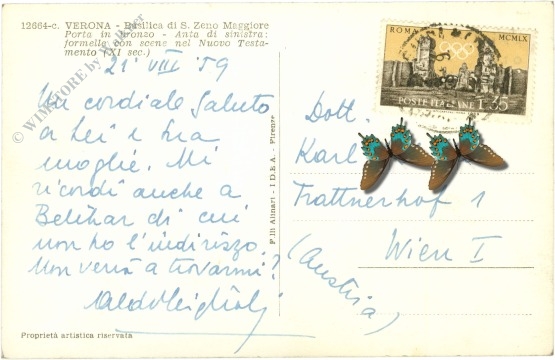 12664-c. VERONA - Basilica di S. Zeno Maggiore
Porta in bronzo - Anta di sinistra:
formelle con scene nel Nuovo Testa-
mento (XI sec.)
© WIMSTORE by
21 VIII 59
Un cordiale saluto
a Lei e sua
moglie. Mi
ricordi anche a
di cui
non ho l'indirizzo.
Non verrà a trovarmi?
Proprietà artistica riservata
F.lli Alinari - I D E A - Firenze
ROMA MCMLX
POSTE ITALIANE L. 35
Dott.
Karl
Trattnerhof 1
Wien I
(Austria)